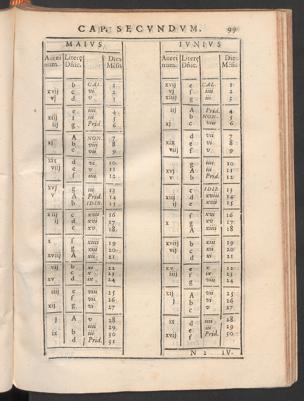 CAP. SECVNDVM. 99
MAIVS.
Aurei num. Literę Dñic. Dies Mẽsis
b CAL. 1
xvij c vi 2
vj d v 3
e iiij 4
xiij f iij 5
iij g Prid. 6
A NON. 7
xj b viij 8
c vij 9
xix d vi 10
viij e v 11
f iiij 12
xvj g iij 13
v A Prid. 14
b IDIB. 15
xiij c xvij 16
ij d xvi 17
e xv 18
x f xiiij 19
g xiij 20
xviij A xij 21
vij b xi 22
c x 23
xv d ix 24
iiij e viij 25
f vij 26
xij g vi 27
j A v 28
b iiij 29
ix c iij 30
d Prid. 31
IVNIVS
Aurei num. Literę Dñic. Dies Mẽsis
xvij e CAL. 1
vj f iiij 2
g iij 3
A Prid. 4
b NON. 5
c viij 6
d vij 7
e vi 8
f v 9
g iiij 10
A iij 11
b Prid. 12
c IDIB. 13
d xviij 14
e xvij 15
f xvi 16
g xv 17
A xiiij 18
b xiij 19
c xij 20
d xi 21
e x 22
f ix 23
g viij 24
A vij 25
b vi 26
c v 27
d iiij 28
e iij 29
f Prid. 30
N 2 IV.